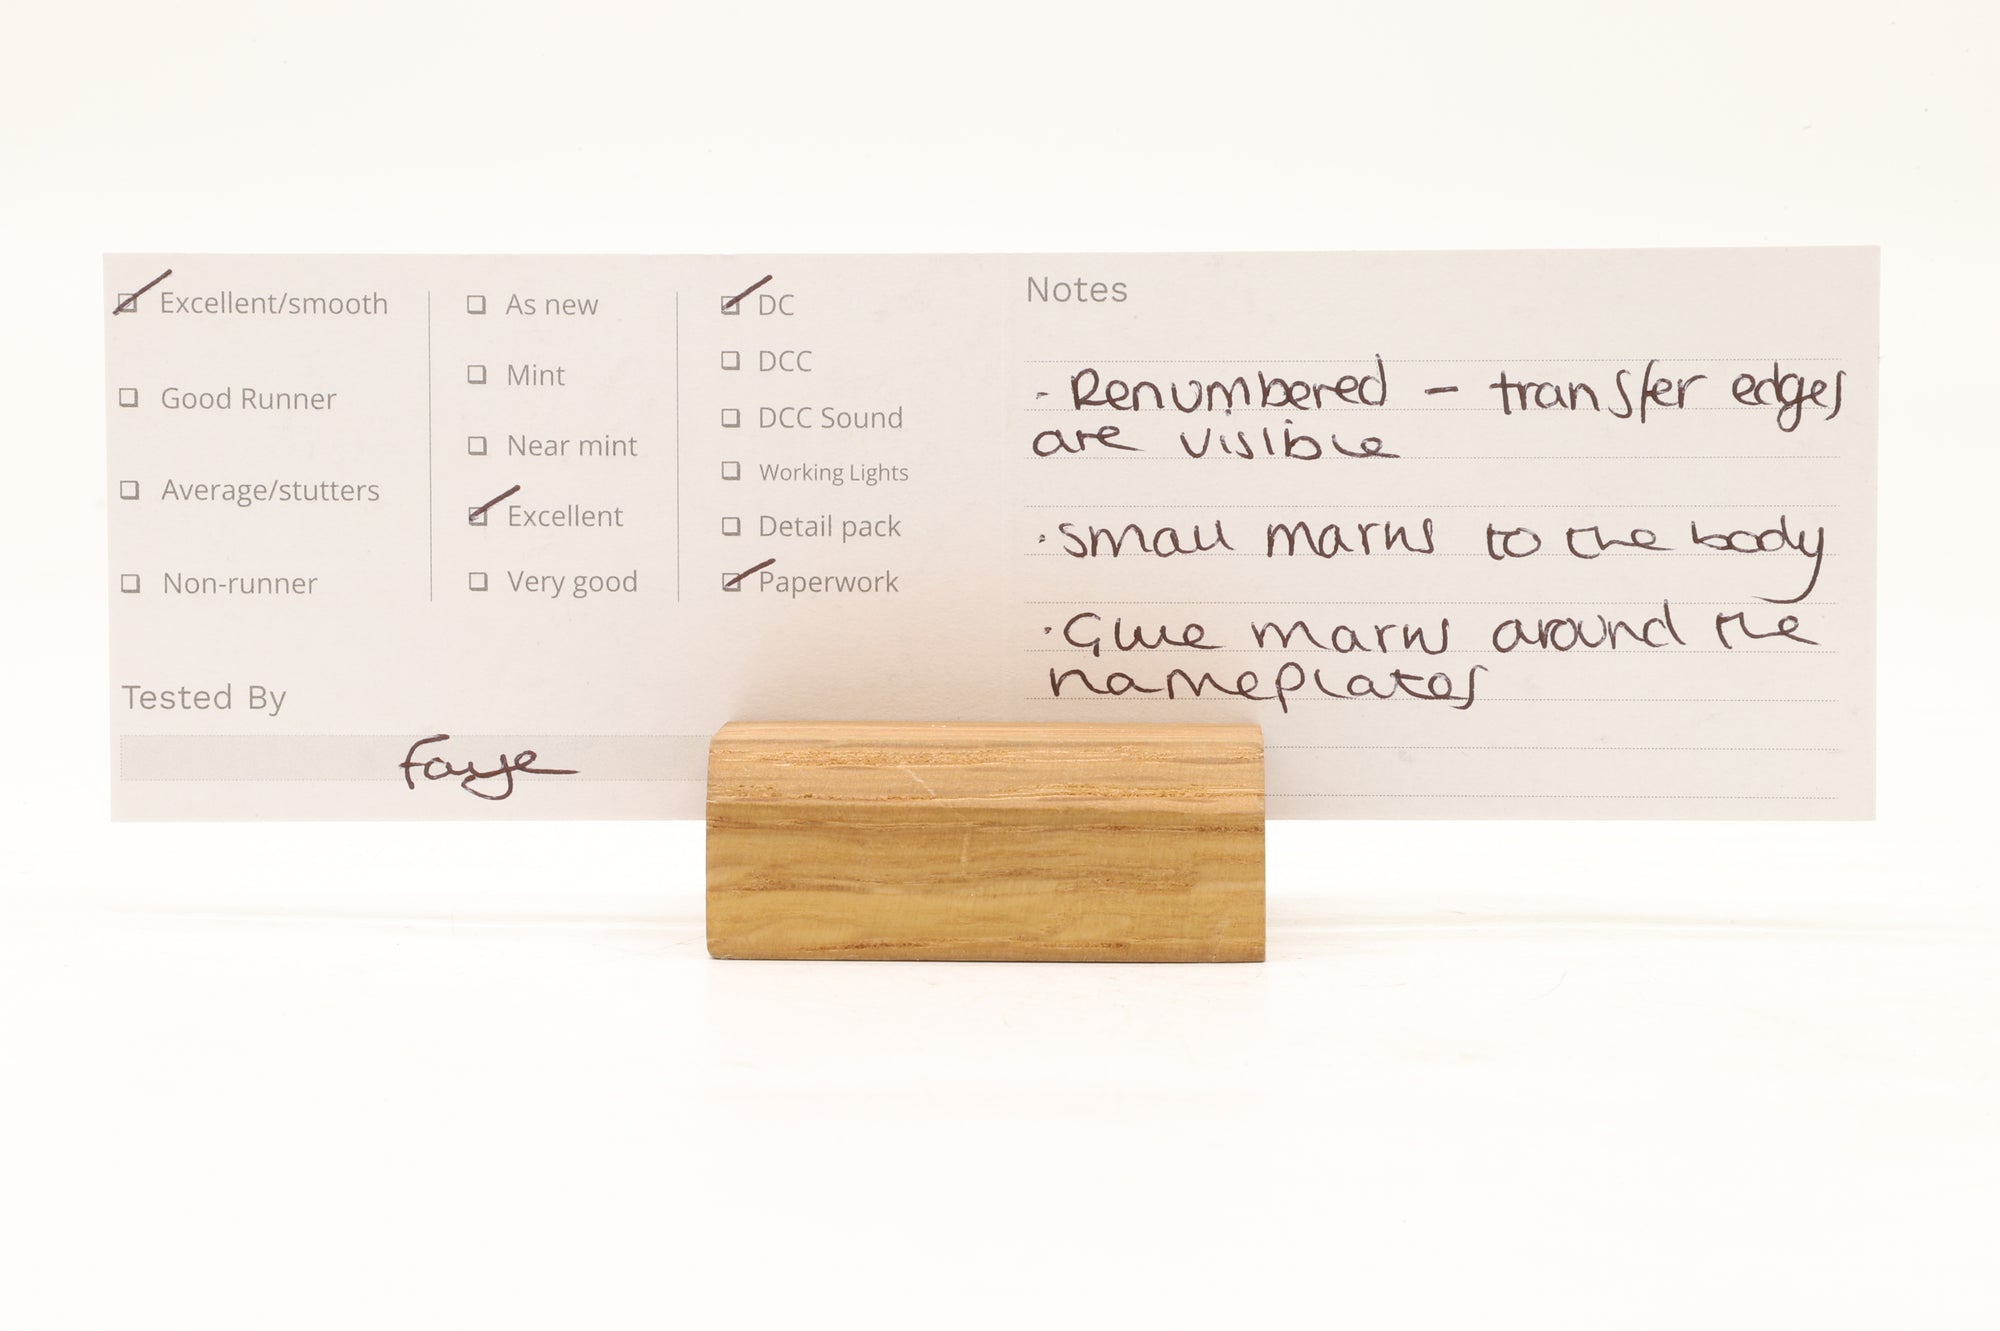 Excellent/smooth
Good Runner
Average/stutters
Non-runner
As new
Mint
Near mint
Excellent
Very good
DC
DCC
DCC Sound
Working Lights
Detail pack
Paperwork
Tested By
Faye
Notes
· Renumbered - transfer edges
are visible
· Small marks to the body
· Glue marks around the
nameplates